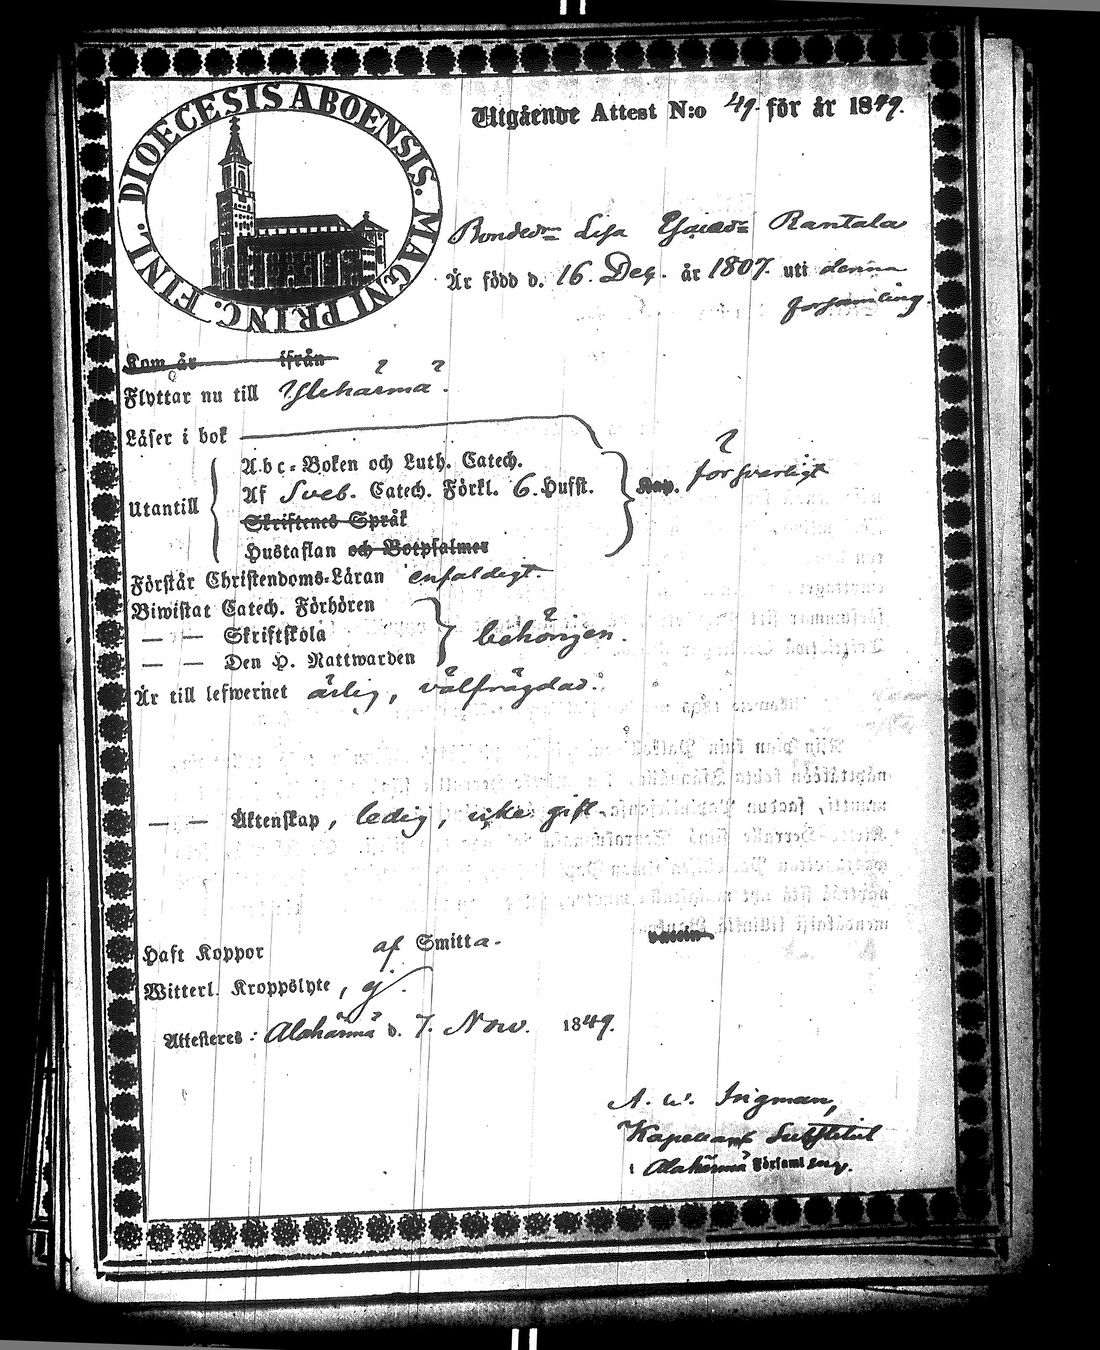 DIOECESIS ABOENSIS. MAGNI PRINC. FINL.
Utgående Attest N:o 49. för år 1849.
Bondedr Lisa Esaiedr Rantala
Är född d. 16. Dec. år 1807. uti denna
församling.
Kom år ifrån
Flyttar nu till Ylihärmä.
Läser i bok
A.b.c.-Boken och Luth. Catech.
Utantill Af Sveb. Catech. Förkl. 6. Hufst. Kap. försvarligt
Skriftenes Språk
Hustaflan och Botpsalmer
Förstår Christendoms-Läran enfaldigt.
Biwistat Catech. Förhören
— — Skriftskola behörigen.
— — Den H. Nattwarden
Är till lefwernet ärlig, välfrägdad.
— — Äktenskap, ledig, icke gift.
Haft Koppor af Smitta.
Witterl. Kroppslyte, ej.
Attesteres: Alahärmä d. 7. Nov. 1849.
A. W. Ingman,
Kapellans Substitut
i Alahärmä Församling.